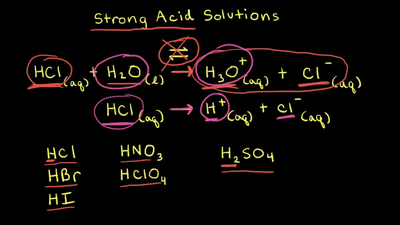 Strong Acid Solutions
HCl(aq) + H₂O(l) ⇌ → H₃O⁺(aq) + Cl⁻(aq)
HCl(aq) → H⁺(aq) + Cl⁻(aq)
HCl HNO₃ H₂SO₄
HBr HClO₄
HI